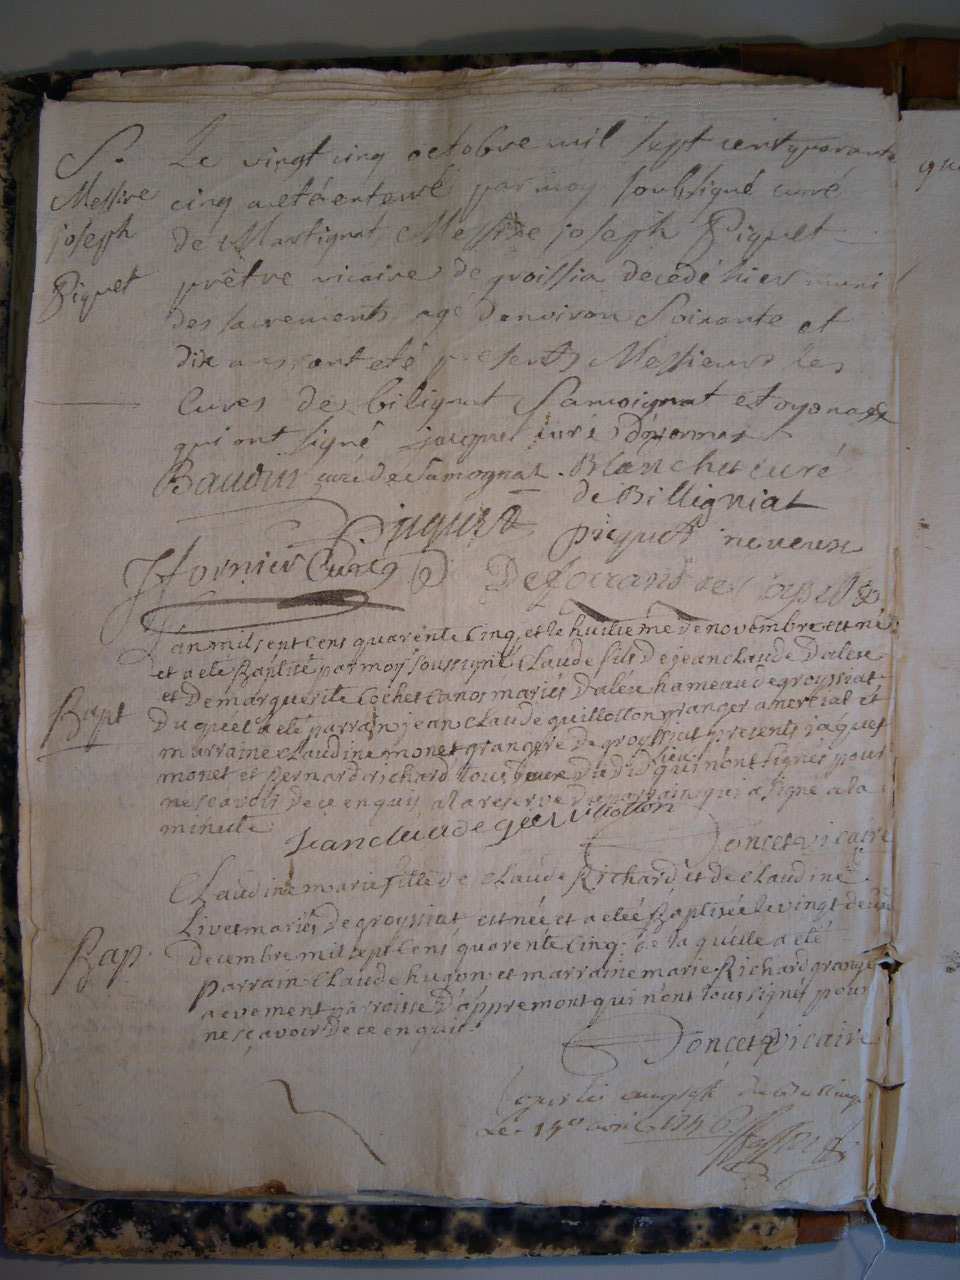 S.
Messire
joseph
Piquet
Le vingt cinq octobre mil sept cent quarante
cinq a eté enterré par moy soussigné curé
de Martignat Messire joseph Piquet
prêtre vicaire de groissia decedé hier muni
des sacrements agé denviron Soixante et
dix ans ont eté presents Messieurs les
Cures de bilignat Samoignat et oyonax
qui ont signé jacquet curé
Baudin curé de Samognat. Blanchet curé
de Billigniat
piequet neveux
Hornier Curé
De
L'an mil sept cens quarente Cinq et le huitieme de novembre est né
et a eté Baptisé par moy soussigné Claude fils de jean claude daleu
et de marguerite Cochet Canos mariés daleu hameau de groyssiat
Bapt
duqueel a eté parrain jean claude guillotton granger a mertial et
marraine claudine monet grangere de groyssiat presents jaques
monet et Bernard richard tous deux dudit lieu qui n'ont signés pour
ne sçavoir de ce enquis a la reserve du parrain qui a signé a la
minute
Jan cluade geuillotton
Poncet vicaire
Claudine marie fille de Claude Richard et de Claudine
Livet mariés de groyssiat est née et a eté Baptisée le vingt deux
Bap.
decembre mil sept Cens quarente Cinq. de la quelle a eté
parrain Claude hugon et marraine marie Richard
a evement parroisse d'appremont qui n'ont tous signés pour
ne sçavoir de ce enquis
Poncet vicaire
Le 19e avril 1746